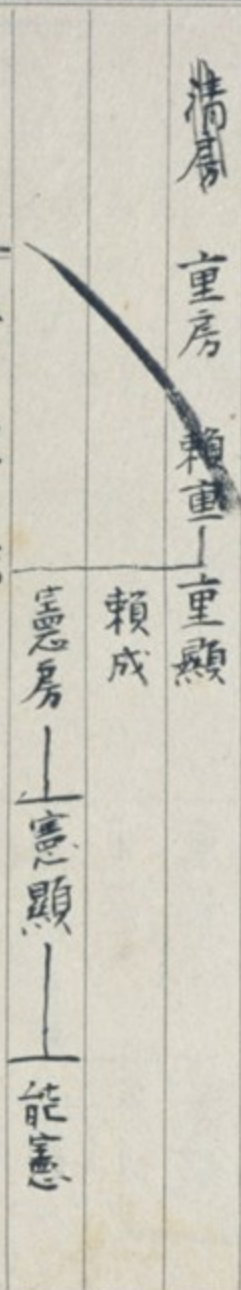 清房 重房 賴重 重顯
賴成
憲房 憲顯 能憲